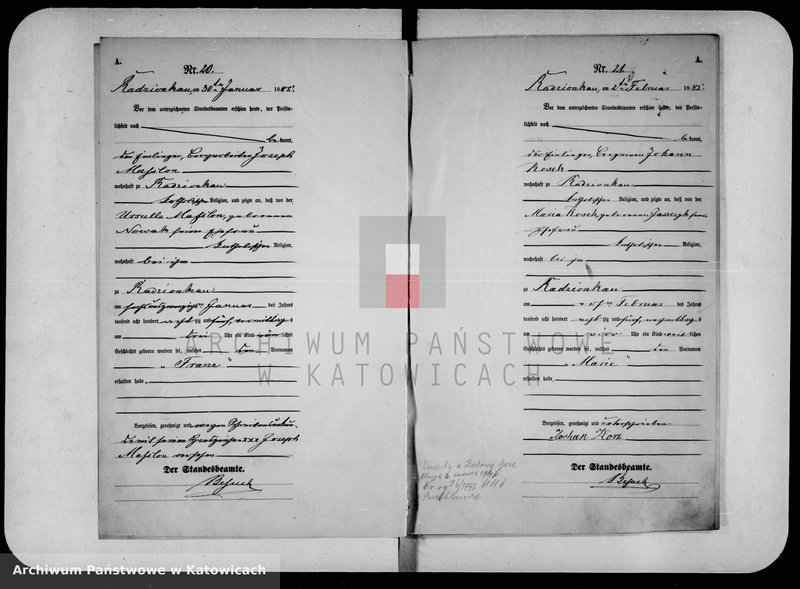 A.
Nr. 20.
Radzionkau, am 30ten Januar 1885.
Vor dem unterzeichneten Standesbeamten erschien heute, der Persön-
lichkeit nach
bekannt,
der Einlieger, Bergarbeiter Joseph
Mahilon
wohnhaft zu Radzionkau
katholischer Religion, und zeigte an, daß von der
Ursulla Mahilon, geborenen
Nowak seiner Ehefrau
katholischer Religion,
wohnhaft bei ihm
zu Radzionkau
am sechsundzwanzigsten Januar des Jahres
tausend acht hundert achtzig und fünf, vormittags
um drei Uhr ein Kind männlichen
Geschlechts geboren worden sei, welches den Vornamen
"Franz"
erhalten habe.
Vorgelesen, genehmigt und wegen Schreibensunkun-
de mit seinem Handzeichen xxx Joseph
Mahilon versehen
Der Standesbeamte.
A.
Nr. 21.
Radzionkau, am 2ten Februar 1885.
Vor dem unterzeichneten Standesbeamten erschien heute, der Persön-
lichkeit nach
bekannt,
der Einlieger, Bergmann Johann
Kosch
wohnhaft zu Radzionkau
katholischer Religion, und zeigte an, daß von der
Maria Kosch, geborenen seiner
Ehefrau
katholischer Religion,
wohnhaft bei
zu Radzionkau
am Februar des Jahres
tausend acht hundert achtzig und fünf, nachmittags
um vier Uhr ein Kind weiblichen
Geschlechts geboren worden sei, welches den Vornamen
"Marie"
erhalten habe.
Vorgelesen, genehmigt und unterschrieben
Johan
Der Standesbeamte.
ARCHIWUM PAŃSTWOWE
W KATOWICACH
Archiwum Państwowe w Katowicach